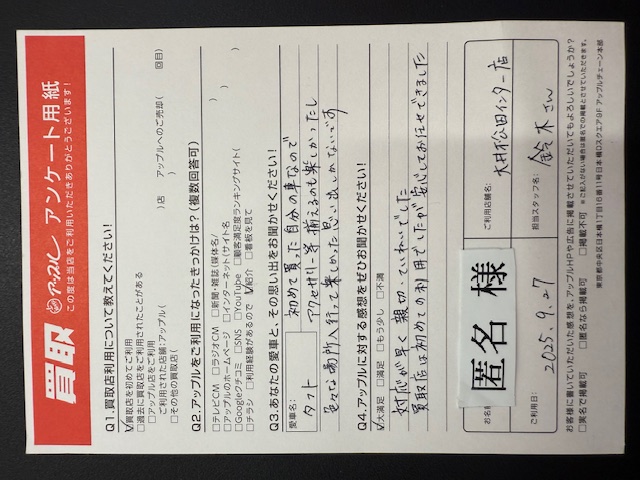 買取 アップル アンケート用紙
この度は当店をご利用いただきありがとうございます!
Q1.買取店利用について教えてください!
☑買取店を初めてご利用
□過去に買取店をご利用されたことがある
□アップル店をご利用
ご利用された店舗:アップル( )店 アップルへのご売却( 回目)
□その他の買取店( )
Q2.アップルをご利用になったきっかけは?(複数回答可)
□テレビCM □ラジオCM □新聞・雑誌(媒体名/ )
□アップルのホームページ □インターネット(サイト名 )
□Googleクチコミ □SNS □YouTube □顧客満足度ランキングサイト( )
□チラシ □利用経験があるので □紹介 □看板を見て
Q3.あなたの愛車と、その思い出をお聞かせください!
愛車名:
タフト
初めて買った自分の車なので
アクセサリー等 揃えるのも楽しかったし
色々な場所へ行って楽しかった思い出しかないです
Q4.アップルに対する感想をぜひお聞かせください!
☑大満足 □満足 □もう少し □不満
対応が早く親切、ていねいでした
買取店は初めての利用でしたが安心してお任せできました
お名前
匿名 様
ご利用店舗名:
大井松田インター店
ご利用日:
2025.9.27
担当スタッフ名:
鈴木さん
お客様に書いていただいた感想を、アップルHPや広告に掲載させていただいてもよろしいでしょうか?
□実名で掲載可 □匿名なら掲載可 □掲載不可 ※ご記入がない場合は匿名での掲載とさせていただきます。
東京都中央区日本橋1丁目16番11号日本橋Dスクエア9F アップルチェーン本部